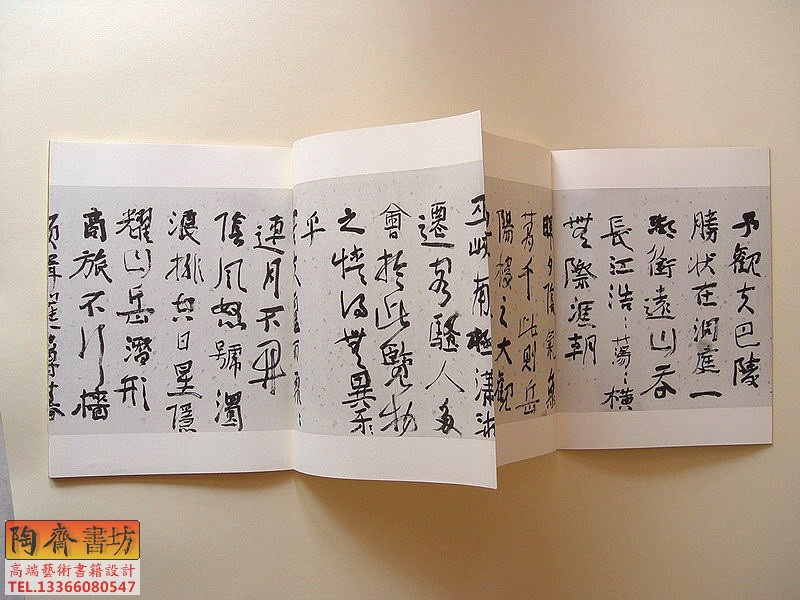 予觀夫巴陵
勝状在洞庭一
湖銜遠山吞
長江浩蕩〻橫
無際涯朝
夕陰氣
萬千此則岳
陽樓之大觀
巫峽南極瀟湘
遷客騷人多
會於此覽物
之情得無異
乎
連月不開
陰風怒號濁
浪排空日星隱
耀山岳潛形
商旅不行檣
陶齋書坊
高端藝術書籍設計
TEL.13366080547